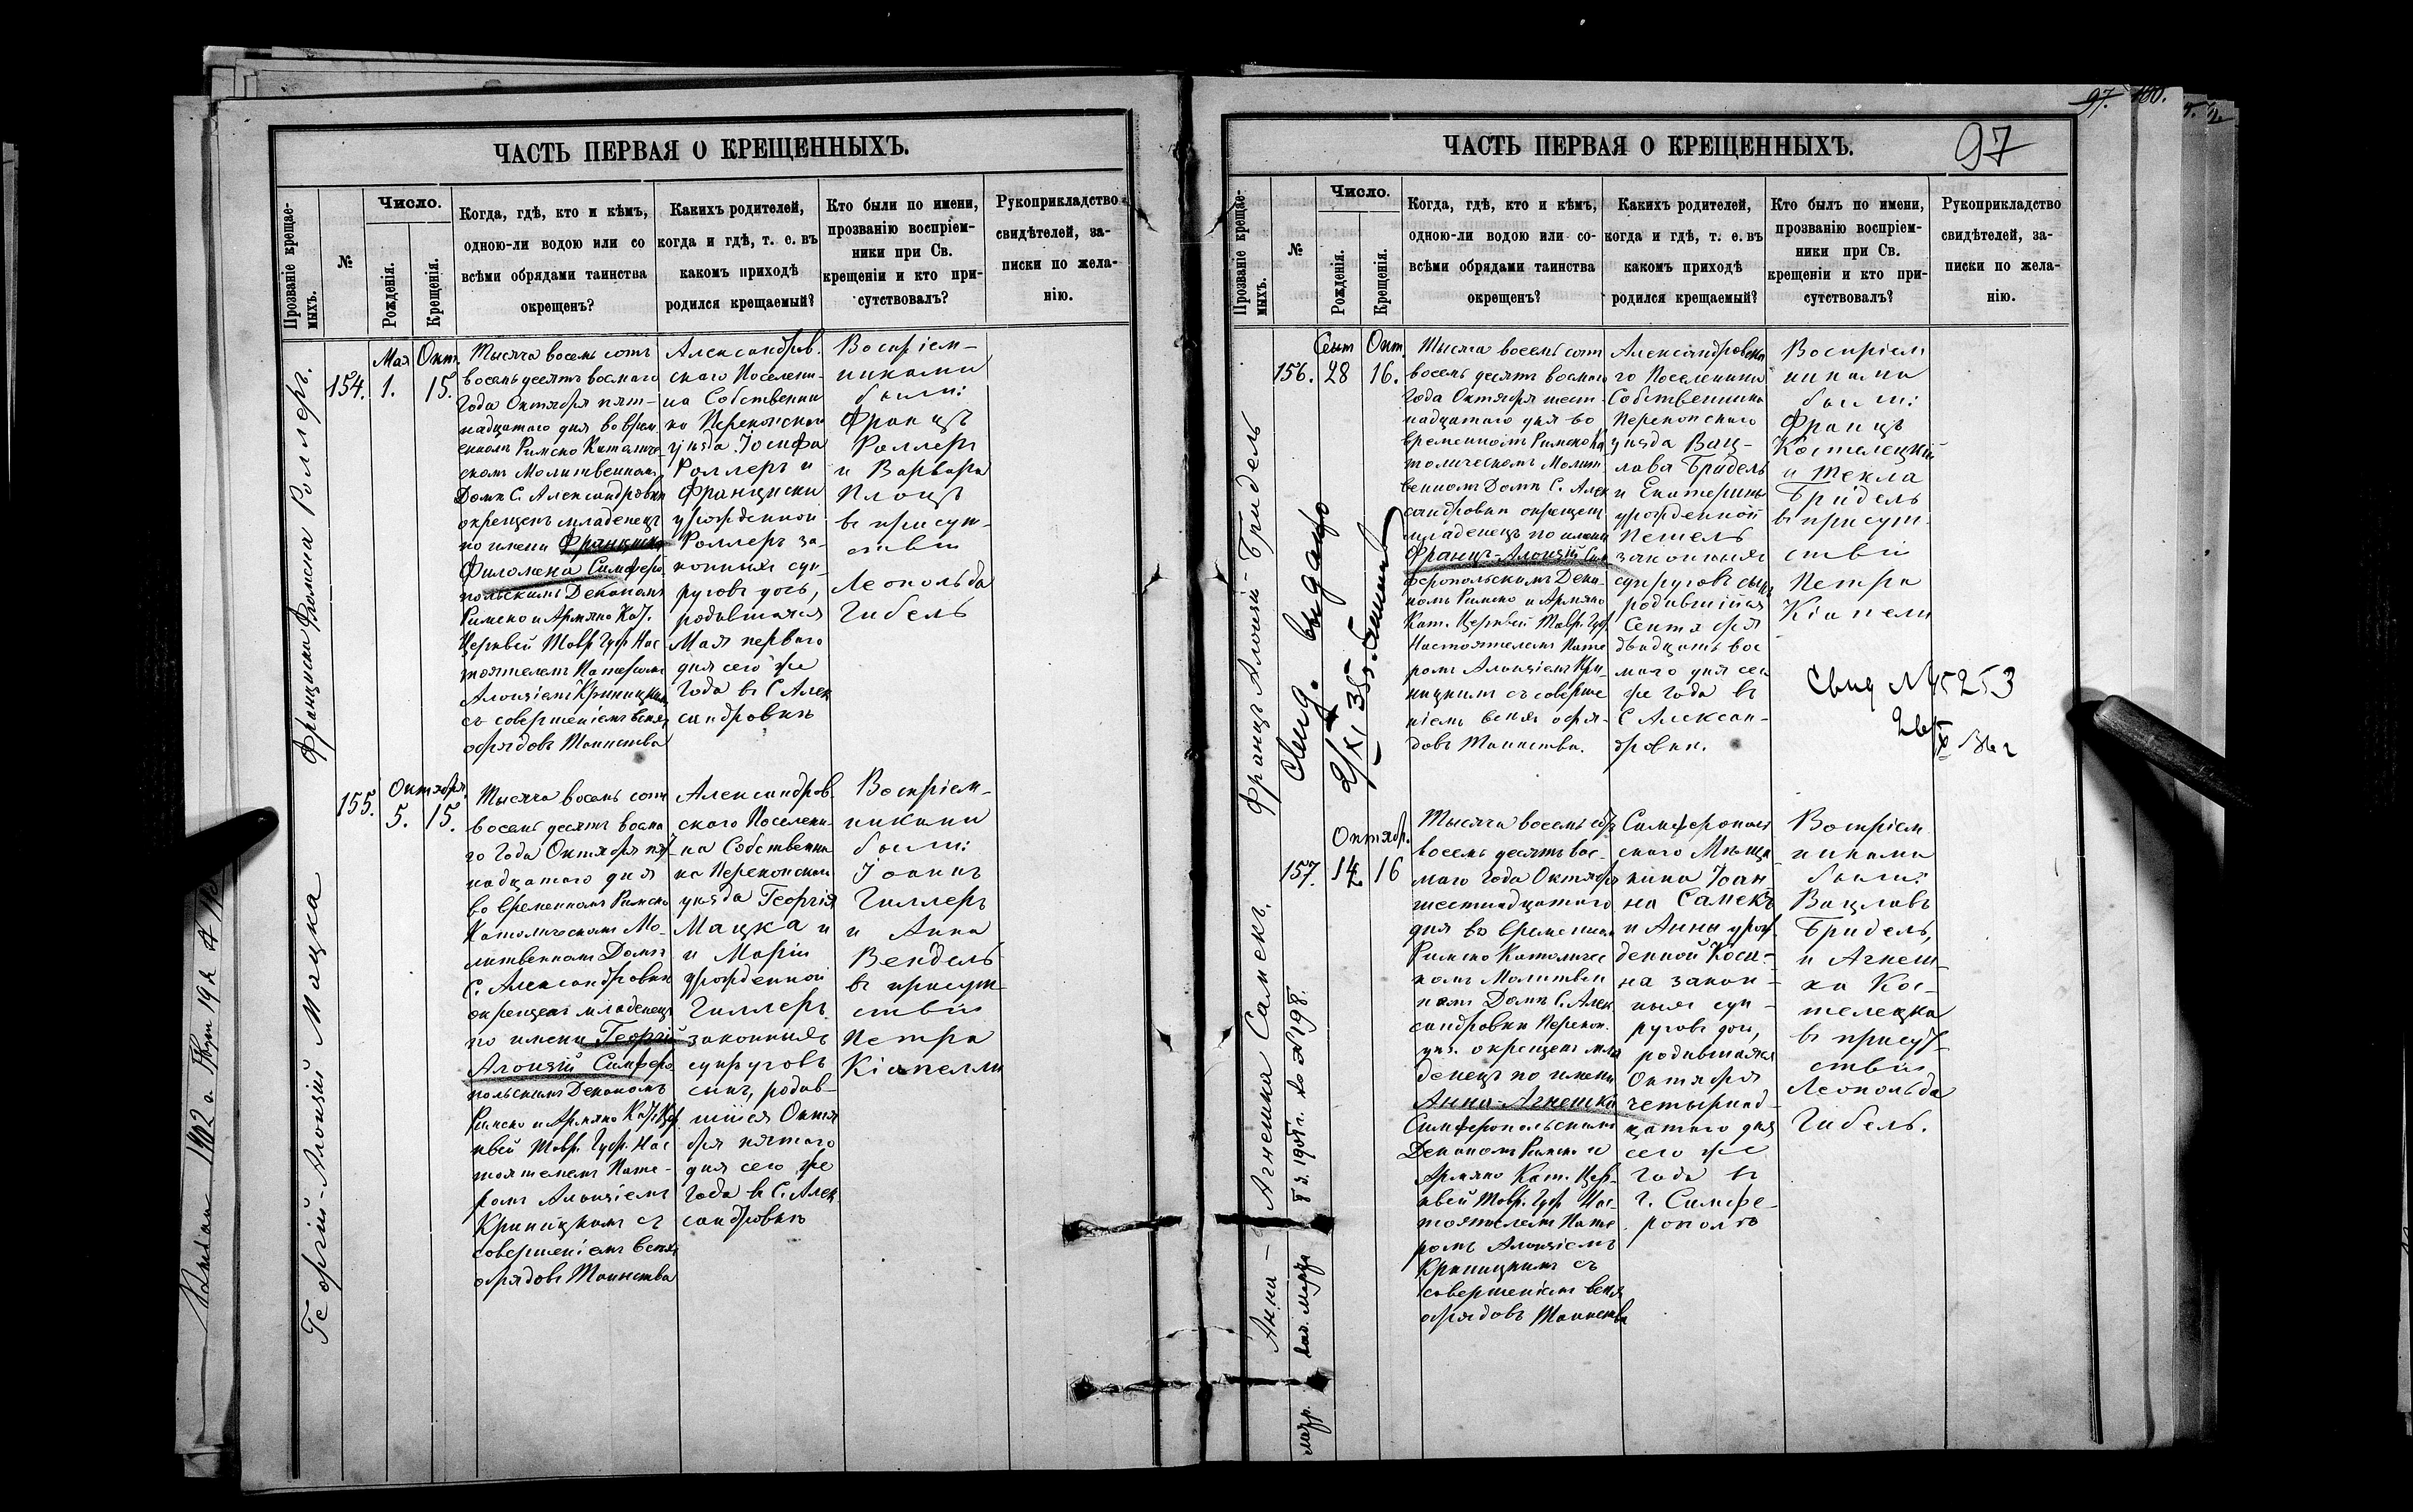 ЧАСТЬ ПЕРВАЯ О КРЕЩЕННЫХЪ.
Прозваніе крещае-
мыхъ.
№
Число.
Рожденія.
Крещенія.
Когда, гдѣ, кто и кѣмъ,
одною-ли водою или со
всѣми обрядами таинства
окрещенъ?
Какихъ родителей,
когда и гдѣ, т. е. въ
какомъ приходѣ
родился крещаемый?
Кто были по имени,
прозванію воспріем-
ники при Св.
крещеніи и кто при-
сутствовалъ?
Рукоприкладство
свидѣтелей, за-
писки по жела-
нію.
Франциска Роллеръ.
154.
Мая
1.
Окт.
15.
Тысяча восемь сотъ
восемьдесятъ восмаго
Года Октября пят-
надцатаго дня во врем
енномъ Римско Католиче
скомъ Молитвенномъ
Домѣ С. Александровки
окрещенъ младенецъ
по имени Франциска
Филомена Симферо
польскимъ Деканомъ
Римско и Армяно Кат.
Церквей Тавр. Губ. Нас
тоятелемъ Патеромъ
Алоизіемъ Криницкимъ
съ совершеніемъ всѣхъ
обрядовъ Таинства
Александров.
скаго Поселени-
на Собственни
ка Перекопскаго
уѣзда Іосифа
Роллеръ и
Франциски
урожденной
Роллеръ за-
конныхъ суп
руговъ дочь,
родившаяся
Мая перваго
дня сего же
Года въ С. Алек
сандровкѣ
Воспріем-
никами
были:
Францъ
Роллеръ
и Варвара
Плоцъ
въ присут-
ствіи
Леопольда
Гибель
Георгій-Алоизій Мацка
155.
Октября
5.
15.
Тысяча восемь сотъ
восемь десятъ восма
го Года Октября пят
надцатаго дня
во временномъ Римско
Католическомъ Мо-
литвенномъ Домѣ
С. Александровки
окрещенъ младенецъ
по имени Георгій
Алоизій Симферо
польскимъ Деканомъ
Римско и Армяно Кат. Цер
квей Тавр. Губ. Нас
тоятелемъ Пате-
ромъ Алоизіемъ
Криницкимъ съ
совершеніемъ всѣхъ
обрядовъ Таинства
Александров.
скаго Поселени-
на Собственни
ка Перекопскаго
уѣзда Георгія
Мацка и
и Маріи
урожденной
Гиллеръ
законныхъ
супруговъ
сынъ, родив-
шійся Октя
бря пятаго
дня сего же
Года въ С. Алек
сандровкѣ
Воспріем-
никами
были:
Іоаннъ
Гиллеръ
и Анна
Вендель
въ присут-
ствіи
Петра
Кіапелли
97. 100.
97
ЧАСТЬ ПЕРВАЯ О КРЕЩЕННЫХЪ.
Прозваніе крещае-
мыхъ.
№
Число.
Рожденія.
Крещенія.
Когда, гдѣ, кто и кѣмъ,
одною-ли водою или со-
всѣми обрядами таинства
окрещенъ?
Какихъ родителей,
когда и гдѣ, т. е. въ
какомъ приходѣ
родился крещаемый?
Кто былъ по имени,
прозванію воспріем-
ники при Св.
крещеніи и кто при-
сутствовалъ?
Рукоприкладство
свидѣтелей, за-
писки по жела-
нію.
Францъ Алоизій-Бридель
Свид. выдано
156.
Сент
28
Окт.
16.
Тысяча восемь сотъ
восемь десятъ восмаго
Года Октября шест
надцатаго дня во
временномъ Римско Ка
толическомъ Молит
венномъ Домѣ С. Алек
сандровки окрещенъ
младенецъ по имени
Францъ-Алоизій Сим
феропольскимъ Дека-
номъ Римско и Армяно
Кат. Церквей Тавр. Губ.
Настоятелемъ Пате
ромъ Алоизіемъ Кри
ницкимъ съ соверше
ніемъ всѣхъ обря-
довъ Таинства.
Александровска
го Поселенина
Собственника
Перекопскаго
уѣзда Вац-
лава Бридель
и Екатерины
урожденной
Петель
законныхъ
супруговъ сынъ
родившійся
Сентября
двадцать вос
маго дня сего
же Года въ
С Алексан-
дровки.
Воспріем
никами
были:
Францъ
Костелецкій
и Текла
Бридель
въ присут-
ствіи
Петра
Кіапели
Анна-Агнешка Самекъ.
157.
Октябр.
14
16
Тысяча восемь сотъ
восемь десятъ вос-
маго Года Октября
шестнадцатаго
дня во временномъ
Римско Католичес
комъ Молитвен
номъ Домѣ С. Алек
сандровки Перекоп.
уѣз. окрещенъ мла
денецъ по имени
Анна-Агнешка
Симферопольскимъ
Деканомъ Римско и
Армяно Кат. Цер-
квей Тавр. Губ Нас-
тоятелемъ Пате
ромъ Алоизіемъ
Криницкимъ съ
совершеніемъ всѣхъ
обрядовъ Таинства
Симферополь
скаго Мѣща
нина Іоан
на Самекъ
и Анны урож
денной Коси-
на закон-
ныхъ суп-
руговъ дочь,
родившаяся
Октября
четырнад-
цатаго дня
сего же
Года въ
г. Симфе-
рополѣ
Воспріем
никами
были:
Вацлавъ
Бридель,
и Агнеш-
ка Кос-
телецка
въ присут-
ствіи
Леопольда
Гибель.